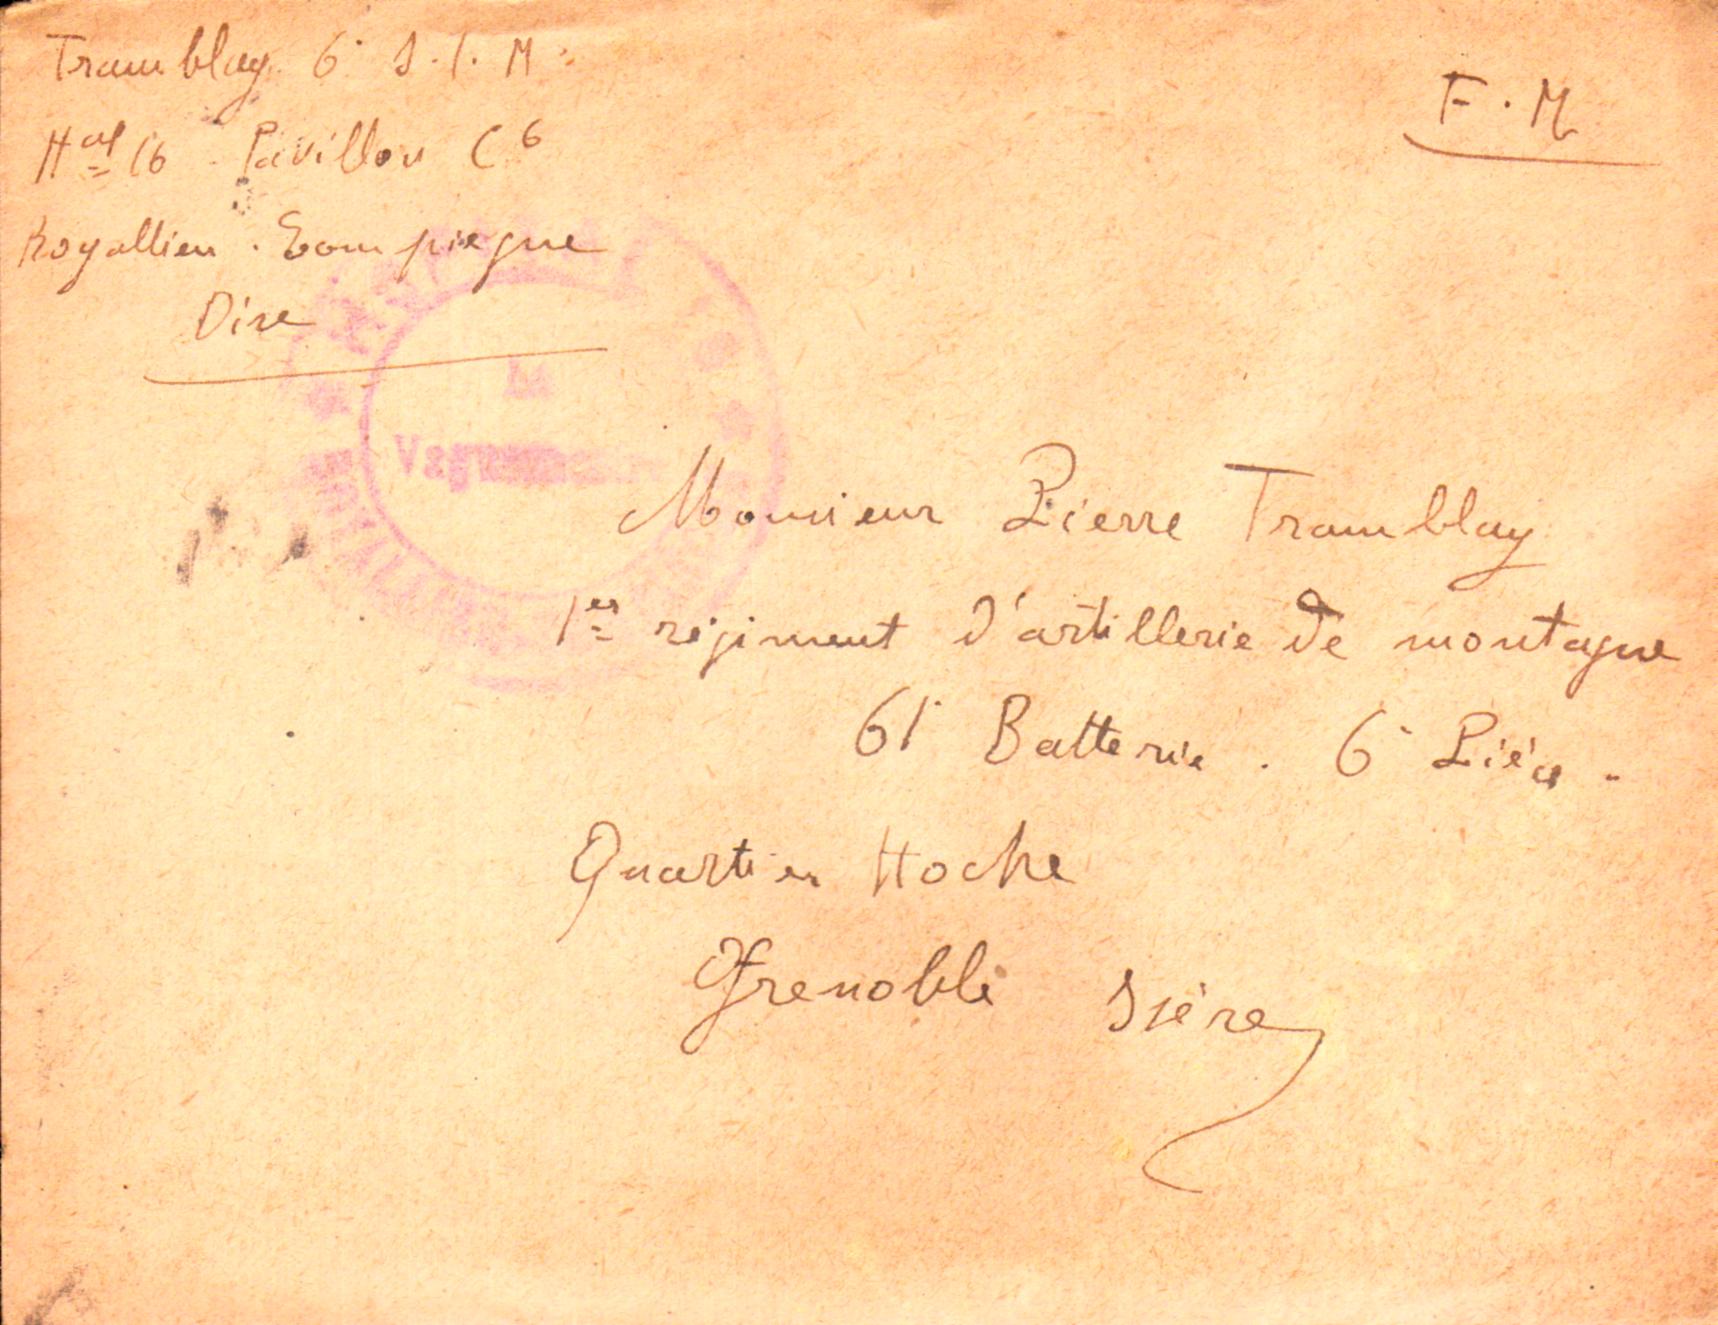 Tramblay. 6e S.I.M.
F.M
Hal 16 - Pavillon C6
Royallieu. Compiègne
Oise
Le
Vaguemestre
Monsieur Pierre Tramblay
1er régiment d'artillerie de montagne
61e Batterie. 6e Pièce.
Quartier Hoche
Grenoble Isère